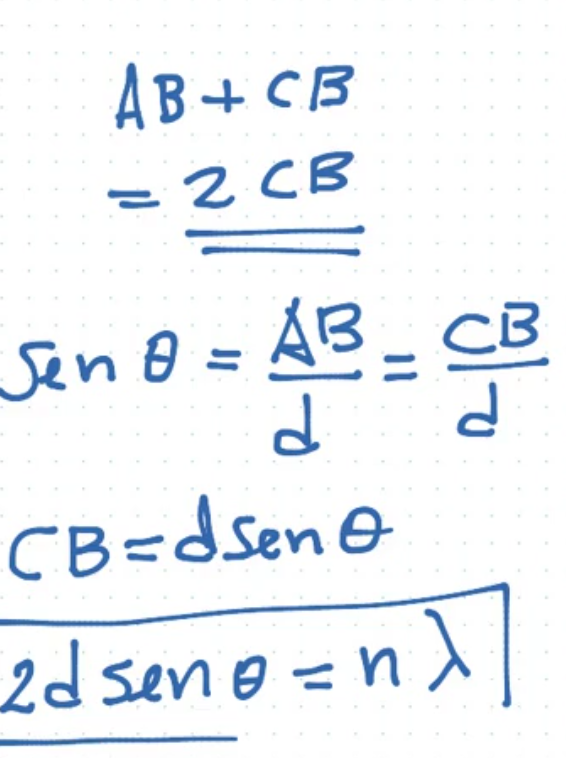 AB + CB
= 2 CB
sen θ = AB/d = CB/d
CB = d sen θ
2d sen θ = n λ